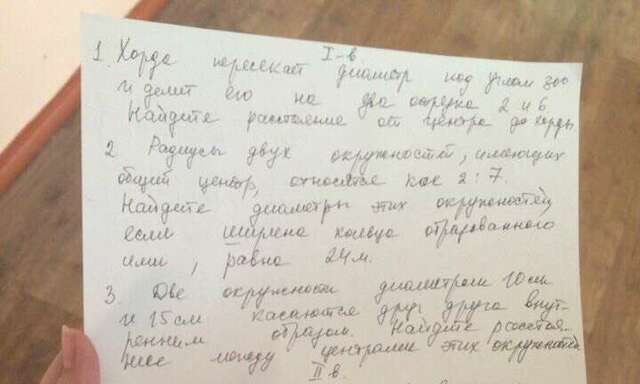 I-в
1. Хорда пересекает диаметр под углом 30°
и делит его на два отрезка 2 и 6
Найдите расстояние от центра до хорды
2 Радиусы двух окружностей, имеющих
общий центр, относятся как 2:7.
Найдите диаметры этих окружностей
если ширина кольца образованного
ими, равна 24 м.
3. Две окружности диаметром 10 см
и 15 см касаются друг друга внут-
ренним образом. Найдите расстоя-
ние между центрами этих окружностей
II в.